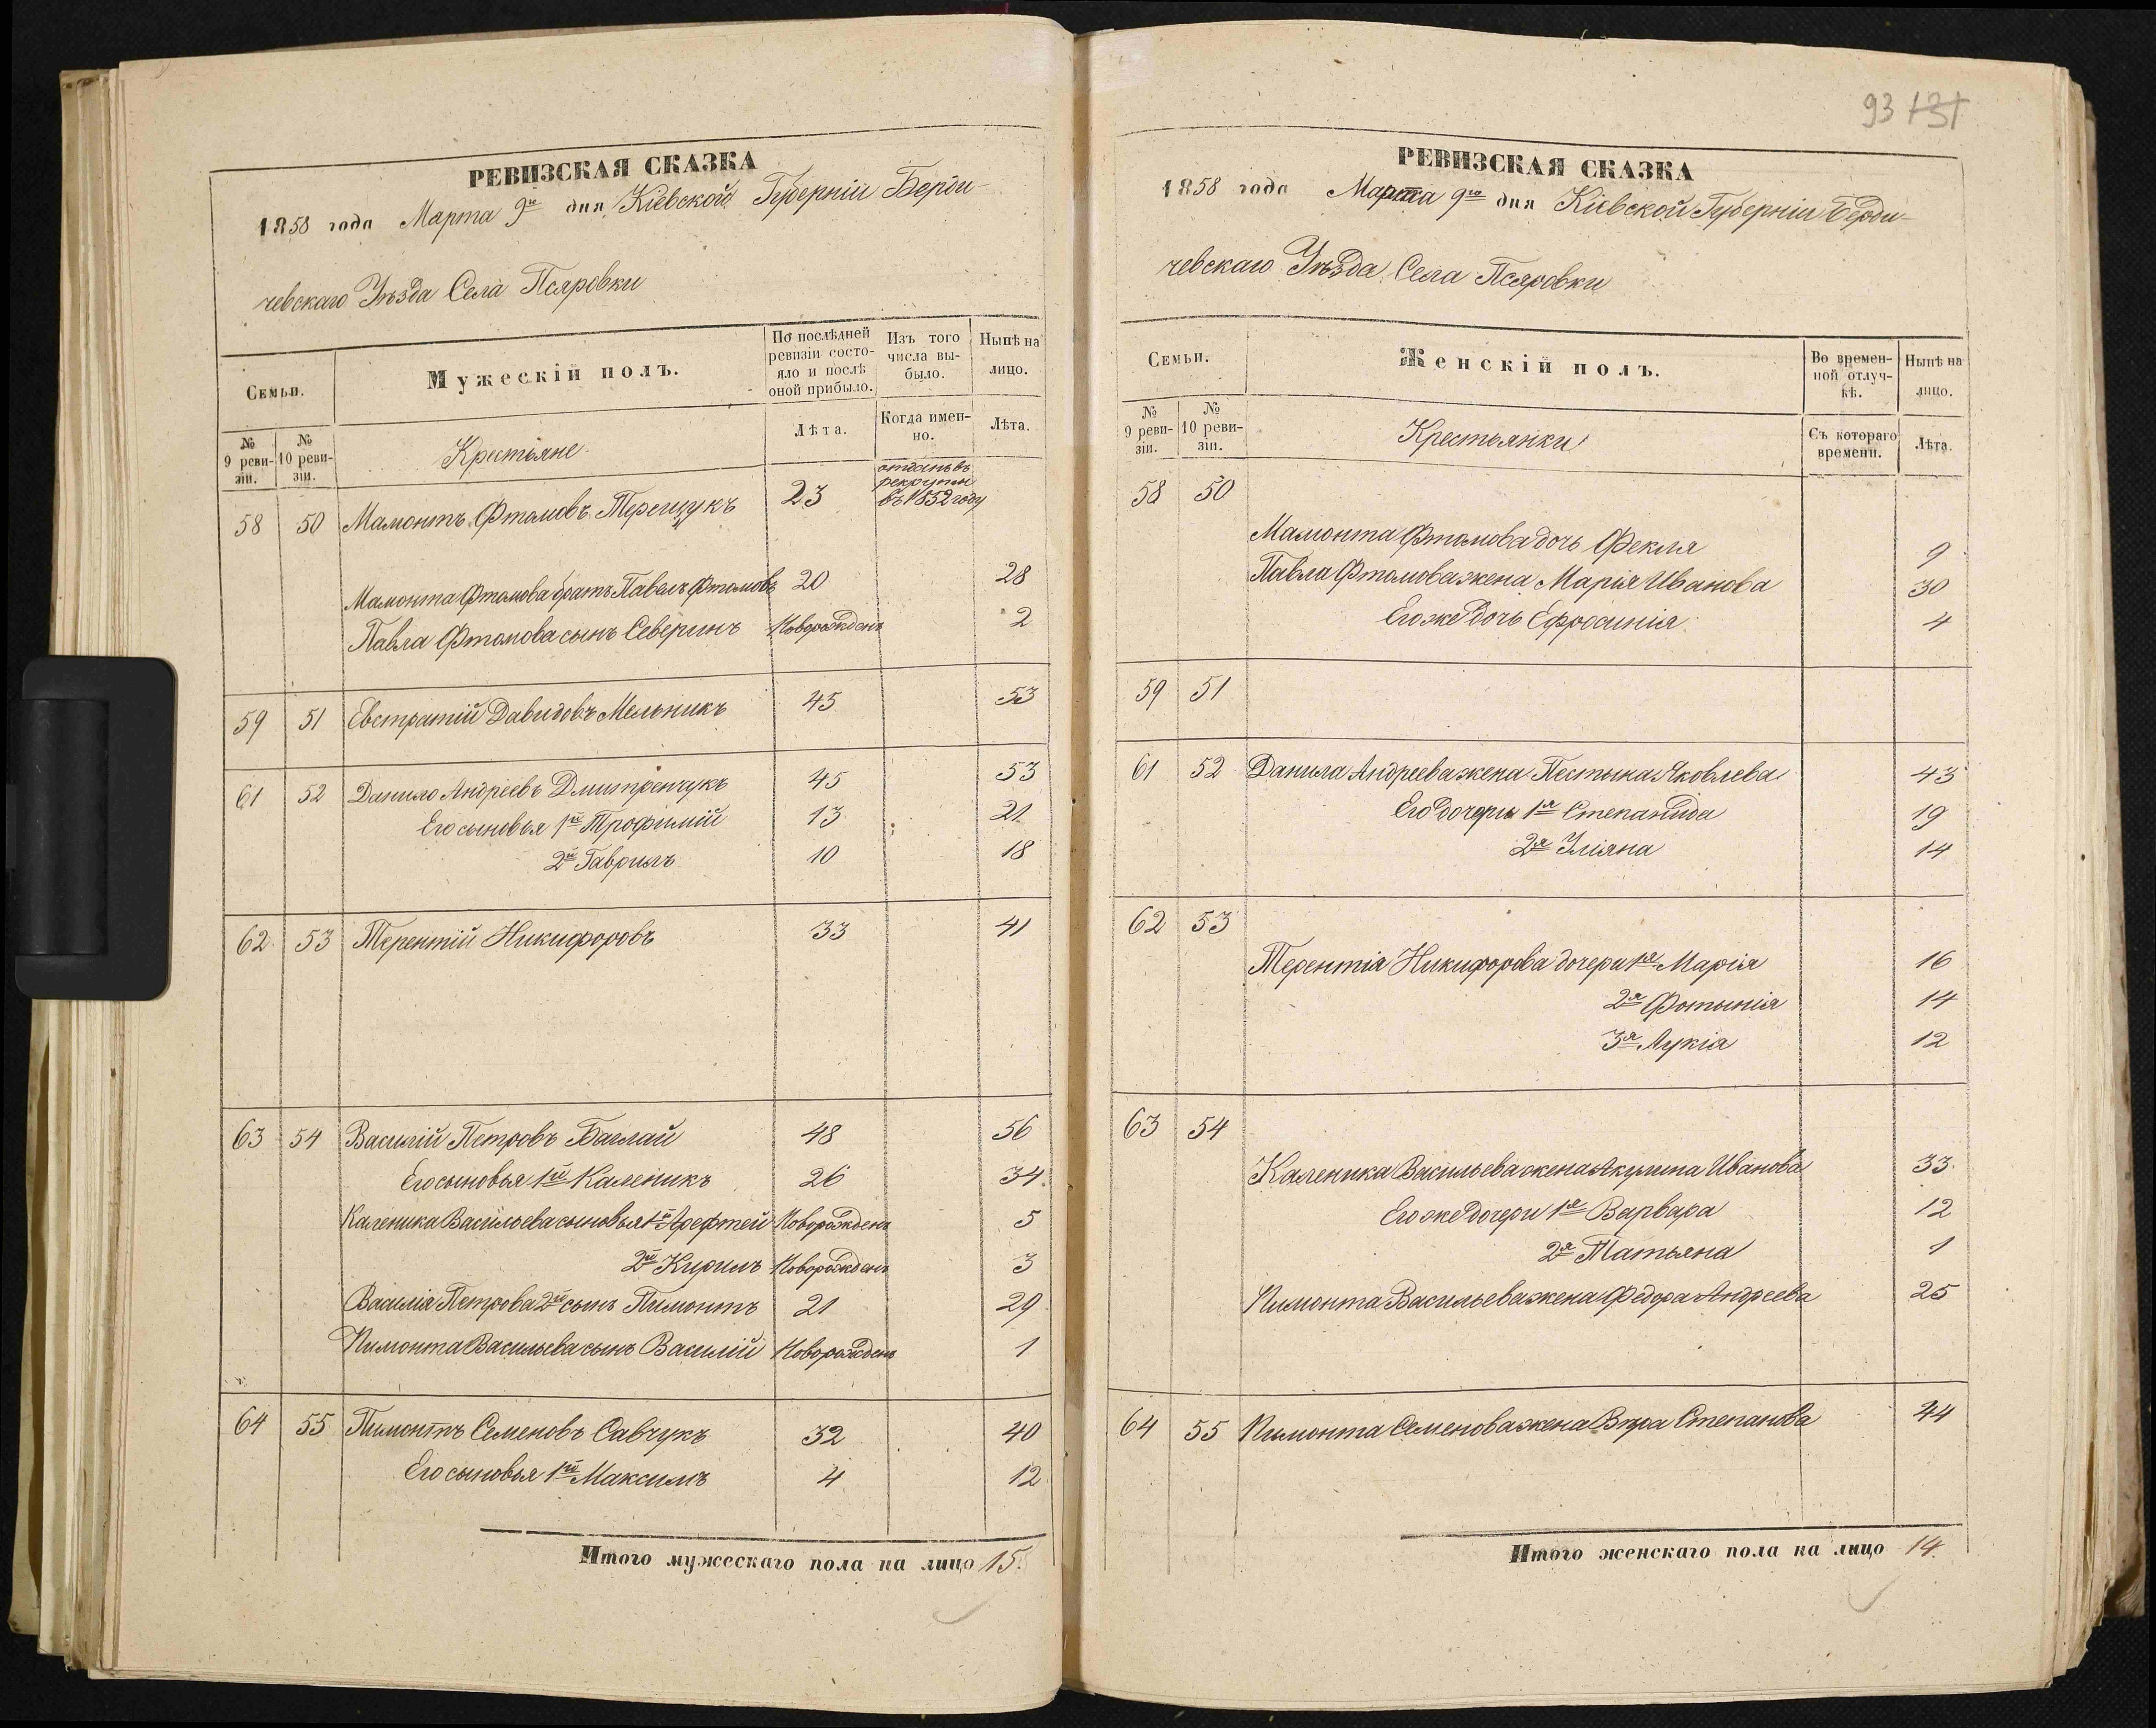 РЕВИЗСКАЯ СКАЗКА
1858 года Марта 9го дня Кіевской Губерніи Берди-
чевскаго Уѣзда Села Псяровки
Семьи.
Мужескій полъ.
По послѣдней ревизіи состояло и послѣ оной прибыло.
Изъ того числа выбыло.
Нынѣ на лицо.
№ 9 ревизіи.
№ 10 ревизіи.
Крестьяне
Лѣта.
Когда именно.
Лѣта.
58 50 Мамонтъ Фтомовъ Терещукъ 23 отданъ въ рекруты въ 1852 году
Мамонта Фтомова братъ Павелъ Фтомовъ 20 28
Павла Фтомова сынъ Северинъ Новорожденъ 2
59 51 Евстратій Давидовъ Мельникъ 45 53
61 52 Данило Андреевъ Дмитренчукъ 45 53
Его сыновья 1й Трофимій 13 21
2й Гаврилъ 10 18
62 53 Терентій Никифоровъ 33 41
63 54 Василій Петровъ Баглай 48 56
Его сыновья 1й Каленикъ 26 34
Каленика Васильева сыновья 1й Арефтей Новорожденъ 5
2й Кирилъ Новорожденъ 3
Василія Петрова 2й сынъ Пимонтъ 21 29
Пимонта Васильева сынъ Василій Новорожденъ 1
64 55 Пимонтъ Семеновъ Савчукъ 32 40
Его сыновья 1й Максимъ 4 12
Итого мужескаго пола на лицо 15.
93 131
РЕВИЗСКАЯ СКАЗКА
1858 года Марта 9го дня Кіевской Губерніи Берди-
чевскаго Уѣзда Села Псяровки
Семьи.
Женскій полъ.
Во временной отлучкѣ.
Нынѣ на лицо.
№ 9 ревизіи.
№ 10 ревизіи.
Крестьянки
Съ котораго времени.
Лѣта.
58 50
Мамонта Фтомова дочь Фекля 9
Павла Фтомова жена Марія Иванова 30
Его же дочь Ефросинія 4
59 51
61 52 Данила Андреева жена Пестына Яковлева 43
Его дочери 1я Степанида 19
2я Уліяна 14
62 53
Терентія Никифорова дочери 1я Марія 16
2я Фотынія 14
3я Лукія 12
63 54
Каленика Васильева жена Акулина Иванова 33
Его же дочери 1я Варвара 12
2я Татьяна 1
Пимонта Васильева жена Федора Андреева 25
64 55 Пимонта Семенова жена Вѣра Степанова 44
Итого женскаго пола на лицо 14.